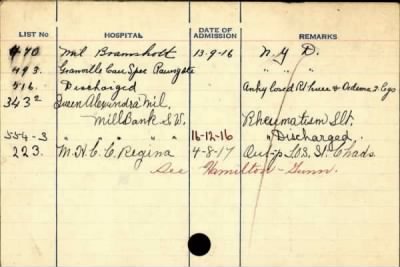 LIST No HOSPITAL DATE OF ADMISSION REMARKS
470 Mil Bramshott 13-9-16 N Y D.
493. Granville Can Spec Ramsgate " " "
516. Discharged Anky losed Rt knee & Oedema 2 legs
343² Queen Alexandra Mil.
Mill Bank S.W. Rheumatism Slt.
554-3 " " " " 16-12-16 " Discharged.
223. M.H.C.C. Regina 4-8-17 Out-p St Chads.
See Hamilton-Gunn.